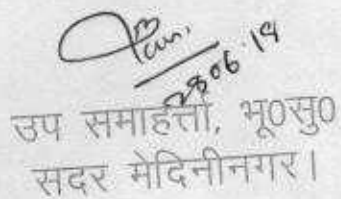 28.06.19
उप समाहर्त्ता, भू0सु0
सदर मेदिनीनगर।